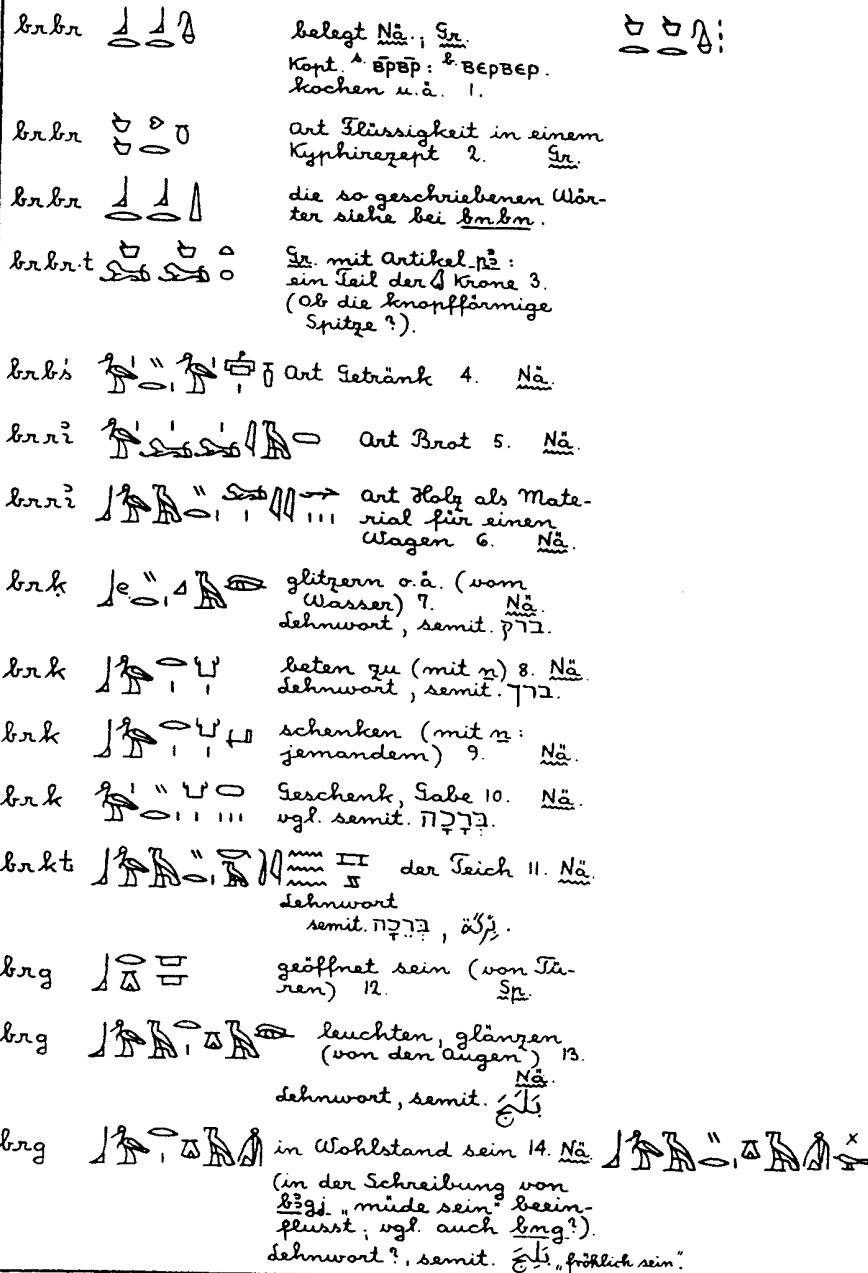 brbr belegt Nä.; Gr.
Kopt. S. B̄P̄B̄P̄ : B. ΒΕΡΒΕΡ.
kochen u.ä. 1.
brbr Art Flüssigkeit in einem
Kyphirezept 2. Gr.
brbr die so geschriebenen Wör-
ter siehe bei bnbn.
brbr.t Gr. mit Artikel pꜣ :
ein Teil der Krone 3.
(Ob die knopfförmige
Spitze ?).
brbś Art Getränk 4. Nä.
brrꞽ Art Brot 5. Nä.
brrꞽ Art Holz als Mate-
rial für einen
Wagen 6. Nä.
brḳ glitzern o.ä. (vom
Wasser) 7. Nä.
Lehnwort, semit. ברק.
brk beten zu (mit n) 8. Nä.
Lehnwort, semit. ברך.
brk schenken (mit n :
jemandem) 9. Nä.
brk Geschenk, Gabe 10. Nä.
vgl. semit. בְּרָכָה.
brkt der Teich 11. Nä.
Lehnwort
semit. בְּרֵכָה, بِرْكَة.
brg geöffnet sein (von Tü-
ren) 12. Sp.
brg leuchten, glänzen
(von den Augen) 13.
Nä.
Lehnwort, semit. بَلَجَ
brg in Wohlstand sein 14. Nä.
(in der Schreibung von
bꜣgj „müde sein“ beein-
flusst; vgl. auch bng ?).
Lehnwort ?, semit. بَلِجَ „fröhlich sein“.